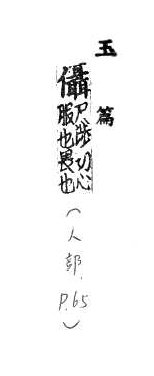 玉篇
儑尸涉切心
服也畏也
(人部, P.65)